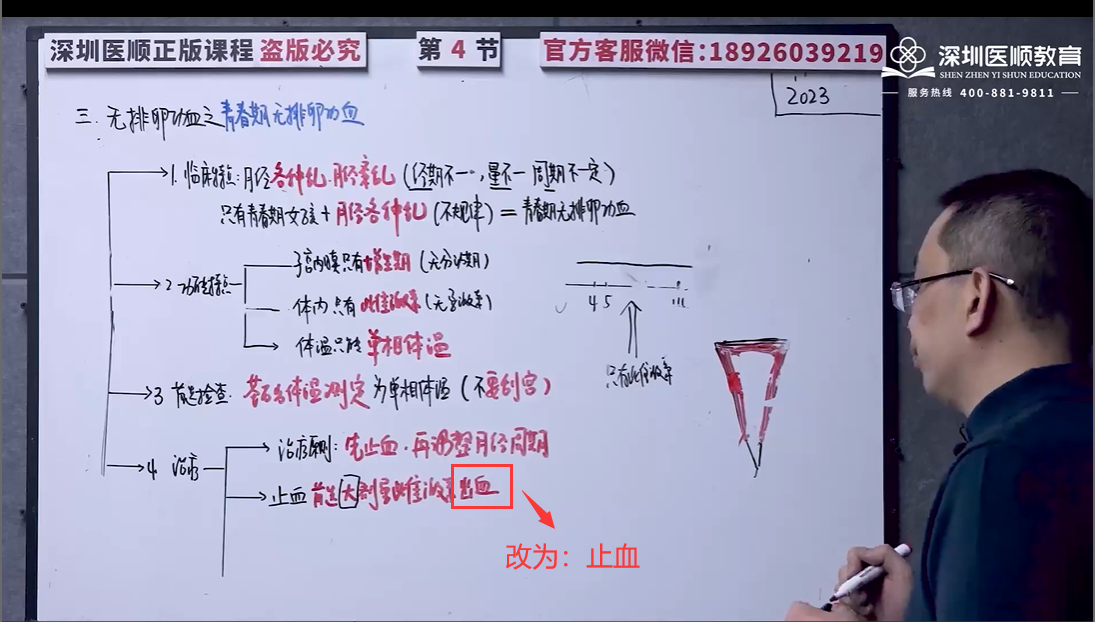 深圳医顺正版课程 盗版必究
第 4 节
官方客服微信:18926039219
深圳医顺教育
SHEN ZHEN YI SHUN EDUCATION
服务热线 400-881-9811
2023
三. 无排卵功血之青春期无排卵功血
1. 临床特点: 月经各种乱. 月经紊乱 (经期不一, 量不一 周期不一定)
只有青春期女孩 + 月经各种乱 (不规律) = 青春期无排卵功血
2. 特点
子宫内膜只有增生期 (无分泌期)
体内只有雌激素 (无孕激素)
体温只能 单相体温
4 5
只有雌激素
3 首选检查. 基础体温测定 为单相体温 (不要刮宫)
4. 治疗
治疗原则: 先止血. 再调整月经周期
止血 首选 大 剂量雌激素 出血
改为：止血